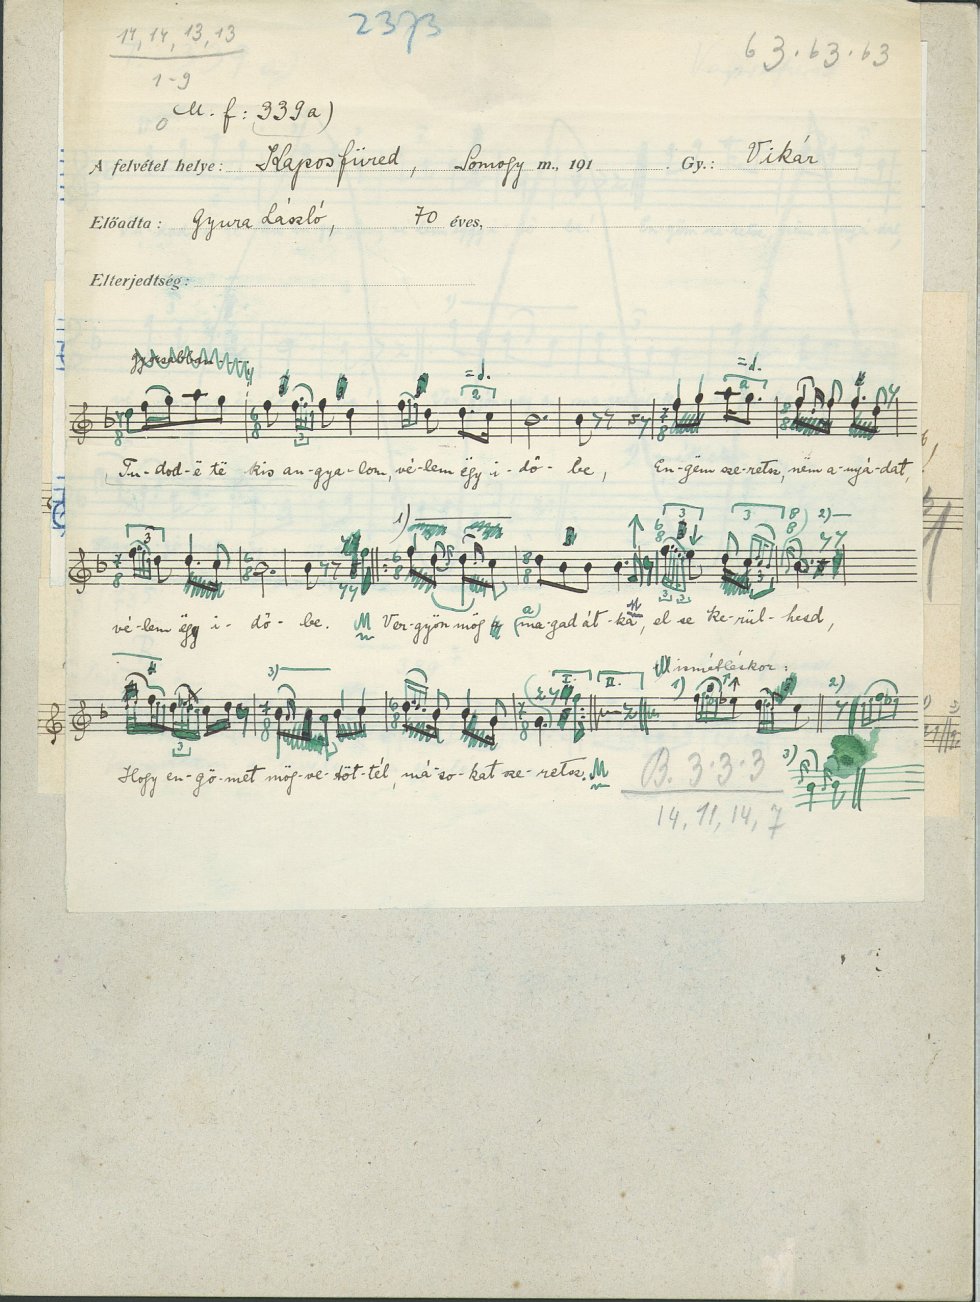 14, 14, 13, 13
2373
63. 63. 63
1-9
M. f: 339a)
A felvétel helye: Kaposfüred, Somogy m., 191 . Gy.: Vikár
Előadta: Gyura László, 70 éves,
Elterjedtség:
Tu-dod-ë të kis an-gya-lom, vé-lem ëgy i-dő-be, En-gëm sze-retsz, nëm a-nyá-dat,
vé-lem ëgy i-dő-be. Ver-gyön mög a) ma-gad át-ka, el se ke-rül-hesd,
Ismétléskor:
1) 2)
3)
Hogy en-gö-met mög-ve-töt-tél, má-so-kat sze-retsz.
B. 3.3.3
14, 11, 14, 7